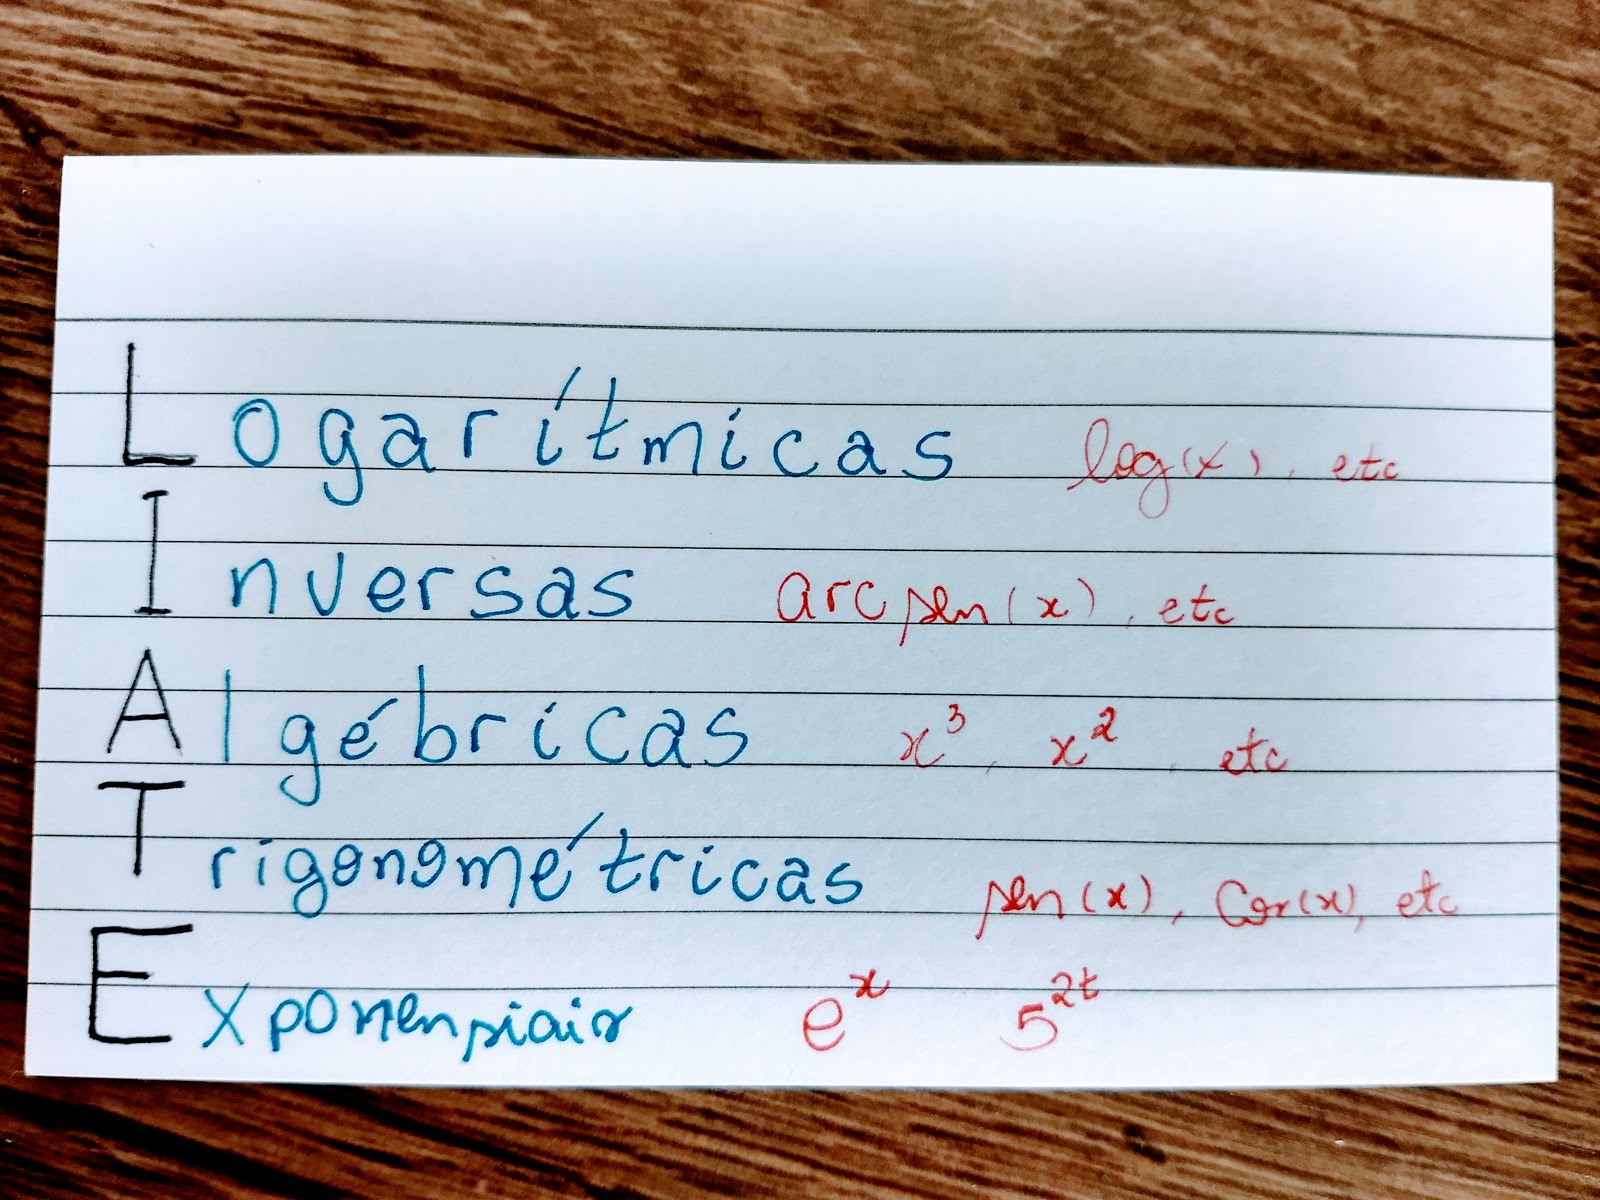 Logarítmicas log(x), etc
Inversas arcsen(x), etc
Algébricas x³, x², etc
Trigonométricas sen(x), Cos(x), etc
Exponensiais eˣ 5²ᵗ